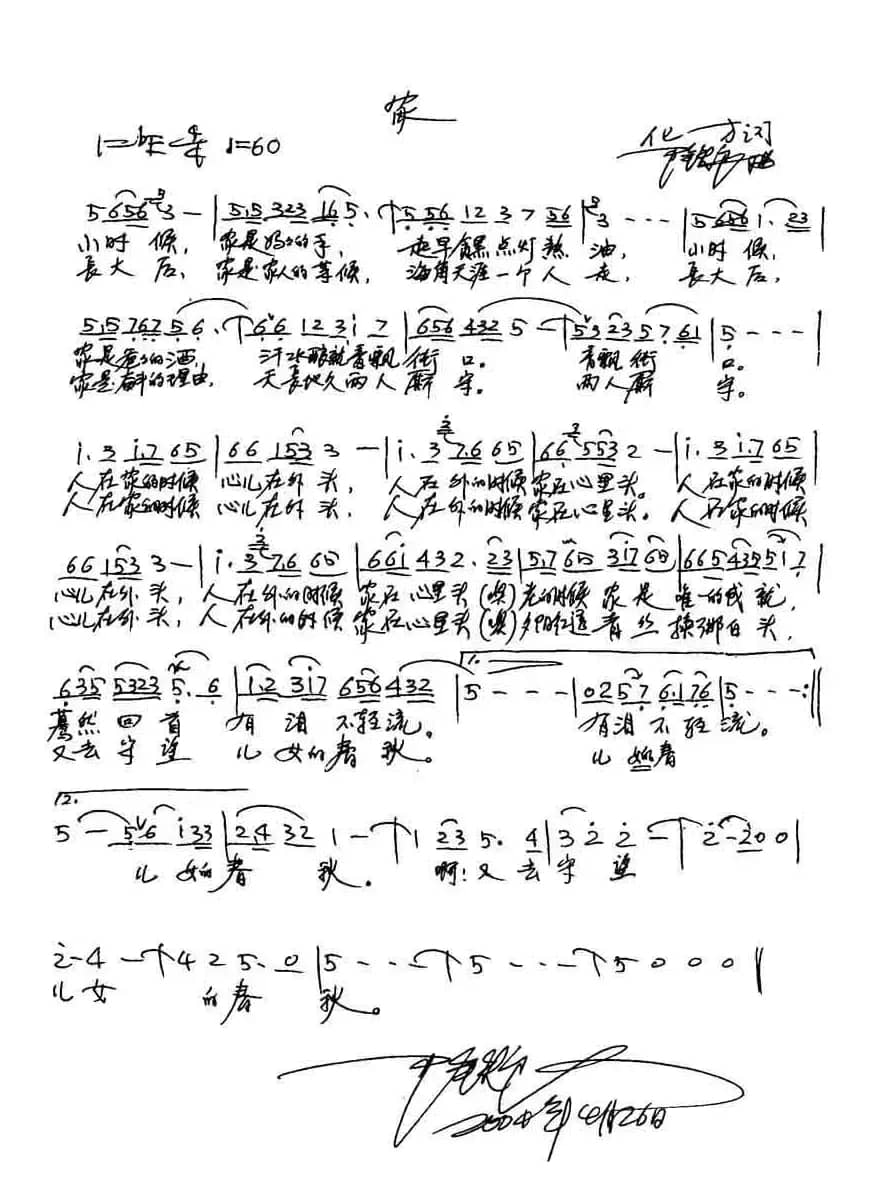 家
1=♭E 4/4 ♩=60
化 方词
曲
5 6 5 6 3 — | 5.5 3 2 3 1 6 5. | 5 5 6 1 2 3 7 5 6 | 3 - - - | 5 6 5 6 1. 2 3 |
小时 候, 家是妈妈的手, 起早 点灯熬 油, 小时 候,
長大 后, 家是家人的等候, 海角天涯一个人 走, 長大 后,
5.5 7 6 7 5 6. | 6 6 1 2 3 1 7 | 6 5 6 4 3 2 5 — | 5 3 2 3 5 7 6 1 | 5 - - - |
家是爸爸的酒, 汗水酿就香飘 街 口。 香飘 街 口。
家是奋斗的理由, 天長地久两人 厮 守。 两人厮 守。
i. 3 i.7 6 5 | 6 6 1 5 3 3 — | i. 3 7.6 6 5 | 6 6 5 5 3 2 — | i. 3 i.7 6 5 |
人在家的时候 心儿在外 头, 人在外的时候 家在心里头。 人在家的时候
人在家的时候 心儿在外 头, 人在外的时候 家在心里头。 人在家的时候
6 6 1 5 3 3 — | i. 3 7.6 6 5 | 6 6 i 4 3 2. 2 3 | 5.7 6 5 3 i 7 6 5 | 6 6 5 4 3 5 5 i 7 |
心儿在外 头, 人在外的时候 家在心里头(噢)老的时候 家 是 唯一的成 就,
心儿在外 头, 人在外的时候 家在心里头(噢)夕阳红遍 青 丝 换了 白 头,
6 3 5 5 3 2 3 5. 6 | i.2 3 i 7 6 5 6 4 3 2 | 1. 5 - - - | 0 2 5 7 6.1 7 6 | 5 - - - :||
蓦然 回 首 有 泪 不轻流。 有泪不 轻 流。
又去 守 望 儿 女的春 秋。 儿 女的春
2.
5 — 5 6 i 3 3 | 2.4 3 2 1 — | 1 2 3 5. 4 | 3 2 2 — | 2 - 2 0 0 |
儿 女的 春 秋。 啊!又 去 守 望
2 - 4 — | 4 2 5. 0 | 5 - - - | 5 - - - | 5 0 0 0 ||
儿 女 的 春 秋。
2004年4月26日